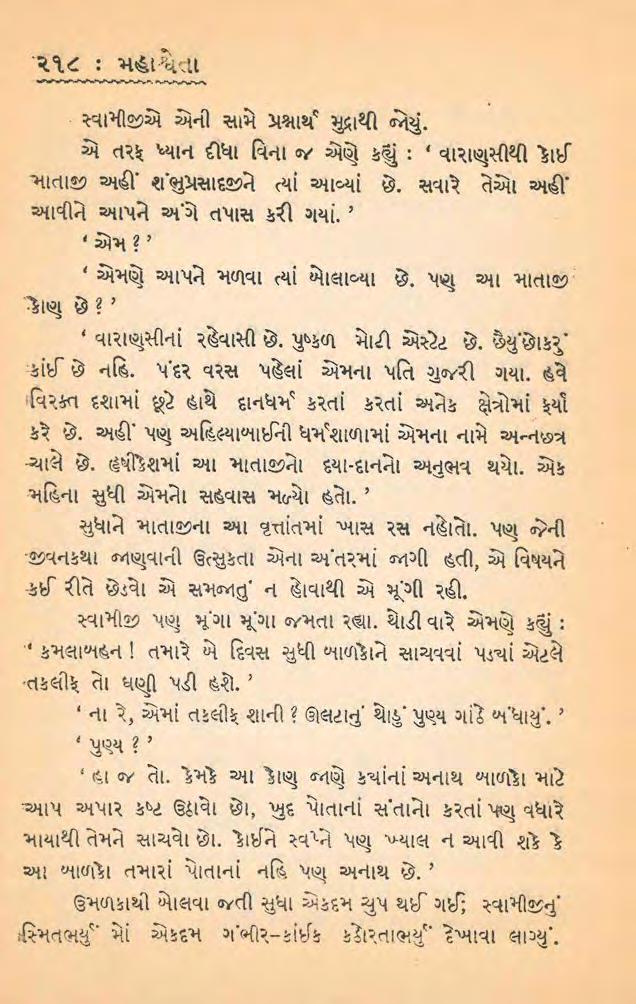 ૨૧૮ : મહાશ્વેતા
સ્વામીજીએ એની સામે પ્રશ્નાર્થ મુદ્રાથી જોયું.
એ તરફ ધ્યાન દીધા વિના જ એણે કહ્યું : ‘ વારાણસીથી કોઈ
માતાજી અહીં શંભુપ્રસાદજીને ત્યાં આવ્યાં છે. સવારે તેઓ અહીં
આવીને આપને અંગે તપાસ કરી ગયાં. ’
‘ એમ ? ’
‘ એમણે આપને મળવા ત્યાં બોલાવ્યા છે. પણ આ માતાજી
કોણ છે ? ’
‘ વારાણસીનાં રહેવાસી છે. પુષ્કળ મોટી એસ્ટેટ છે. છૈયુંછોકરું
કાંઈ છે નહિ. પંદર વરસ પહેલાં એમના પતિ ગુજરી ગયા. હવે
વિરક્ત દશામાં છૂટે હાથે દાનધર્મ કરતાં કરતાં અનેક ક્ષેત્રોમાં ફર્યાં
કરે છે. અહીં પણ અહિલ્યાબાઈની ધર્મશાળામાં એમના નામે અન્નછત્ર
ચાલે છે. હૃષીકેશમાં આ માતાજીનો દયા-દાનનો અનુભવ થયો. એક
મહિના સુધી એમનો સહવાસ મળ્યો હતો. ’
સુધાને માતાજીના આ વૃત્તાંતમાં ખાસ રસ નહોતો. પણ જેની
જીવનકથા જાણવાની ઉત્સુકતા એના અંતરમાં જાગી હતી, એ વિષયને
કઈ રીતે છેડવો એ સમજાતું ન હોવાથી એ મૂંગી રહી.
સ્વામીજી પણ મૂંગા મૂંગા જમતા રહ્યા. થોડી વારે એમણે કહ્યું :
‘ કમલાબહન ! તમારે બે દિવસ સુધી બાળકોને સાચવવાં પડ્યાં એટલે
તકલીફ તો ઘણી પડી હશે. ’
‘ ના રે, એમાં તકલીફ શાની ? ઊલટાનું થોડું પુણ્ય ગાંઠે બંધાયું. ’
‘ પુણ્ય ? ’
‘ હા જ તો. કેમકે આ કોણ જાણે ક્યાંનાં અનાથ બાળકો માટે
આપ અપાર કષ્ટ ઉઠાવો છો, ખુદ પોતાનાં સંતાનો કરતાં પણ વધારે
માયાથી તેમને સાચવો છો. કોઈને સ્વપ્ને પણ ખ્યાલ ન આવી શકે કે
આ બાળકો તમારાં પોતાનાં નહિ પણ અનાથ છે. ’
ઉમળકાથી બોલવા જતી સુધા એકદમ ચુપ થઈ ગઈ; સ્વામીજીનું
સ્મિતભર્યું મોં એકદમ ગંભીર–કાંઈક કઠોરતાભર્યું દેખાવા લાગ્યું.